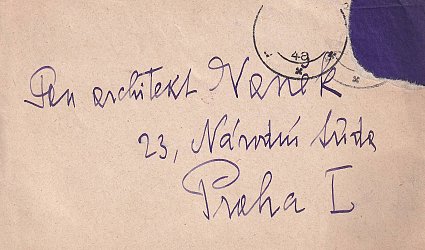 48
Pan architekt Vaněk
23, Národní třída
Praha I